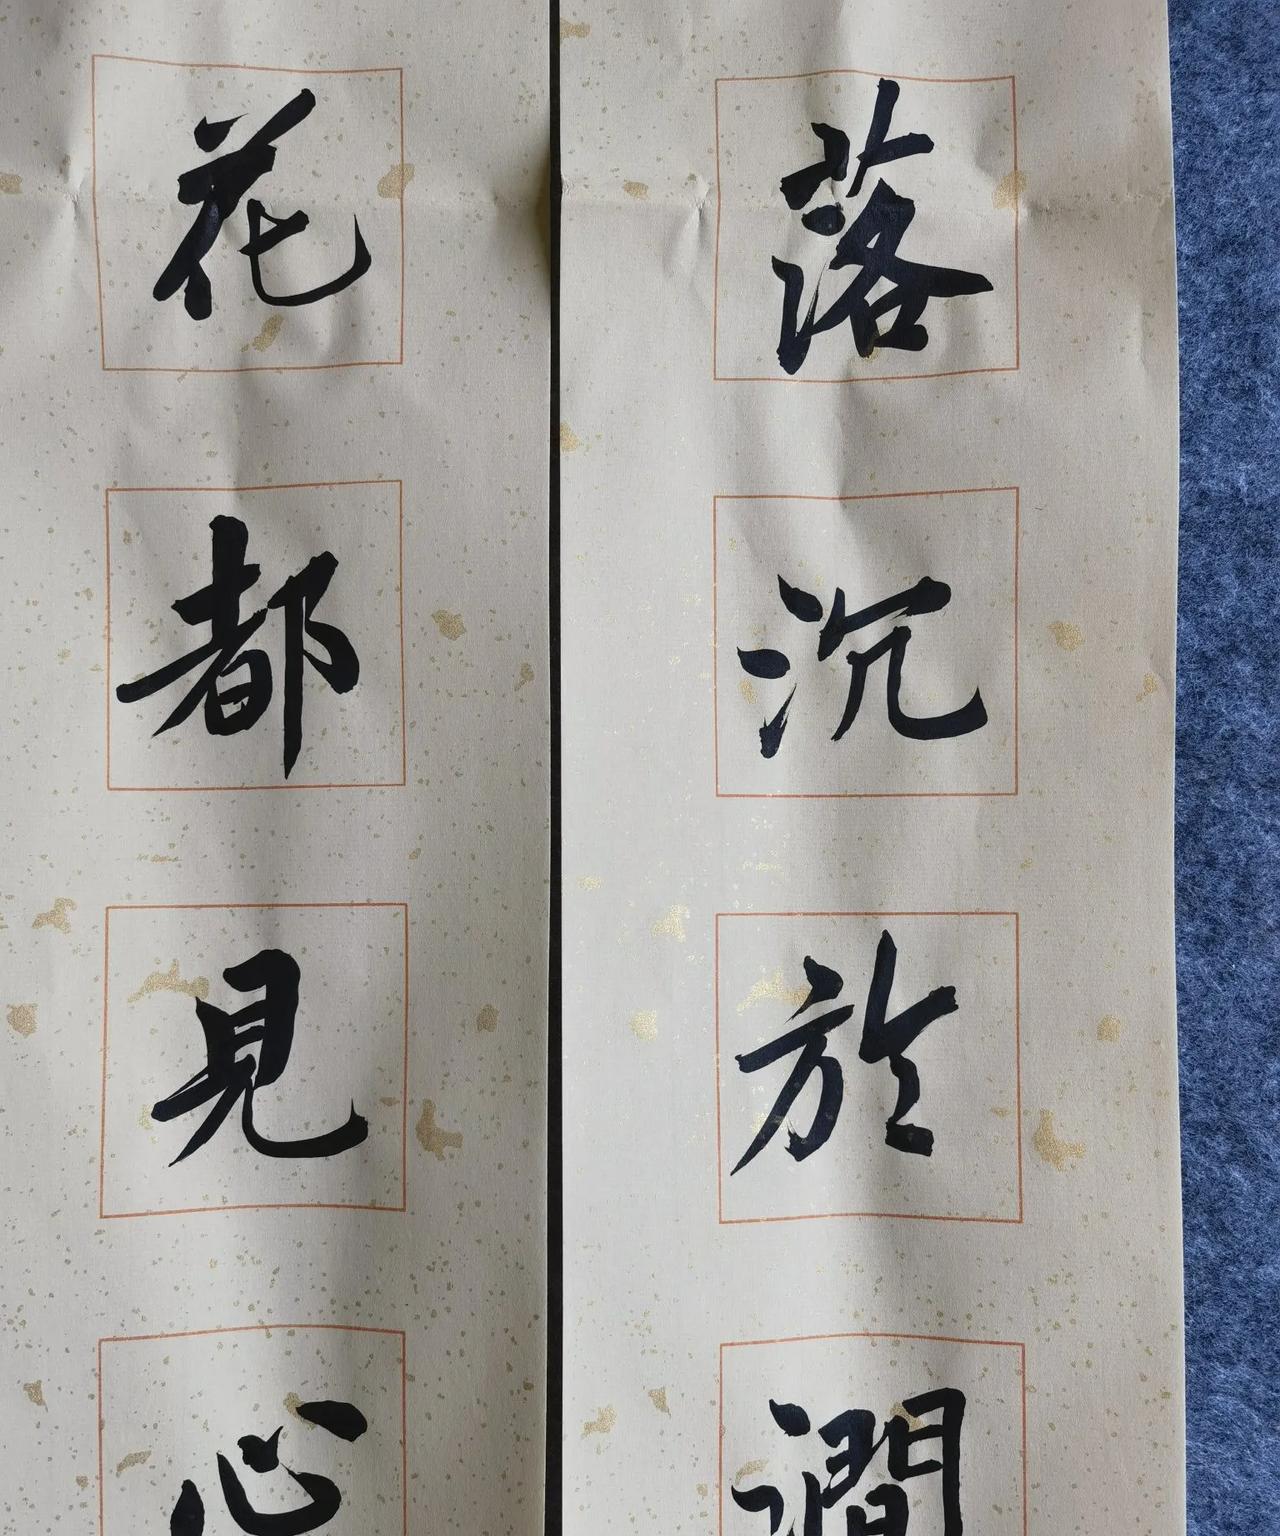 落沉於
花都見心